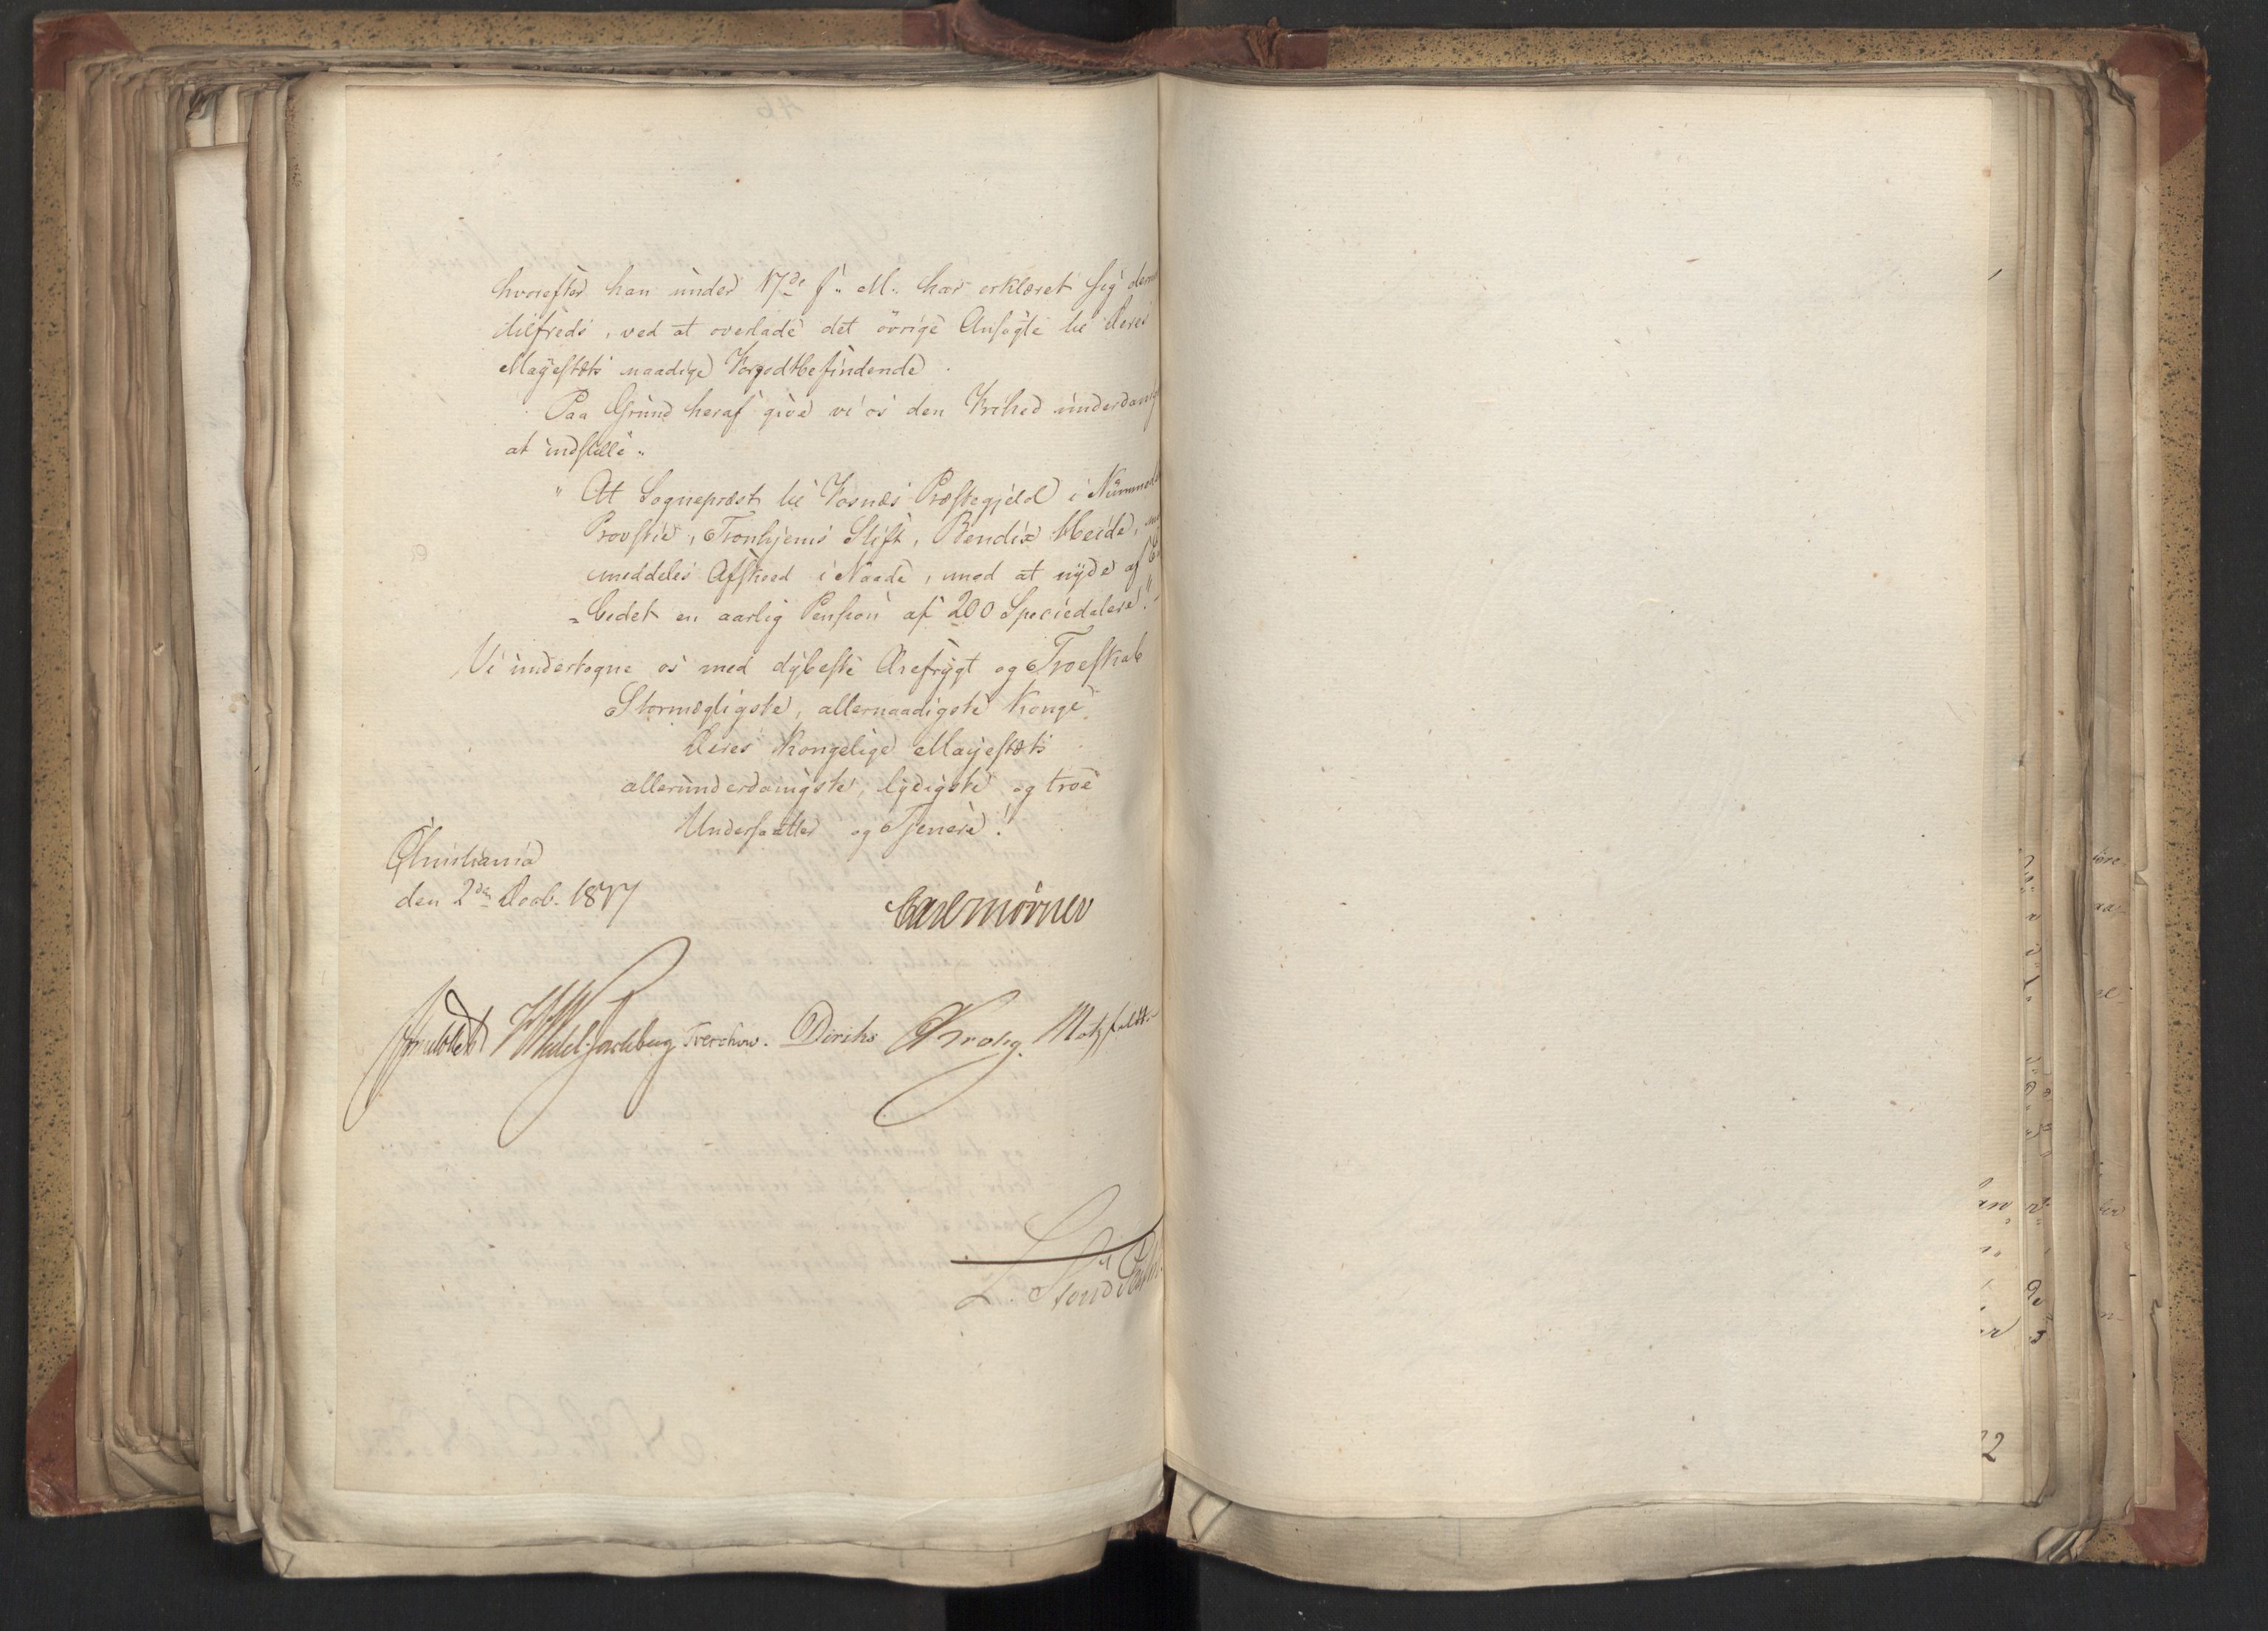 hvorefter han under 17de f. M. har erklæret sig
tilfreds, ved at overlade det övrige Ansøgte til Deres
Mayestæts naadige Forgodtbefindende.
Paa Grund heraf give vi os den Frihed underdanig
at indstille:
"At Sognepræst til Fosnes Præstegjeld i
Provstie, Tronhjems Stift, Bendix Heide,
meddeles Afskeed i Naade, med at nyde af
bedet en aarlig Pension af 200 Speciedalere."
Vi undertegne os med dybeste Ærefrygt og Troeskab
Stormægtigste, allernaadigste Konge
Deres Kongelige Mayestæts
allerunderdanigste, lydigste og troe
Undersaatter og Tjenere!
Christiania
den 2den Decb. 1817
Carl Mörner
Sommerhielm Wedel Jarlsberg Treschow. Diriks Krohg. Motzfeldt
L. Stoud Platou